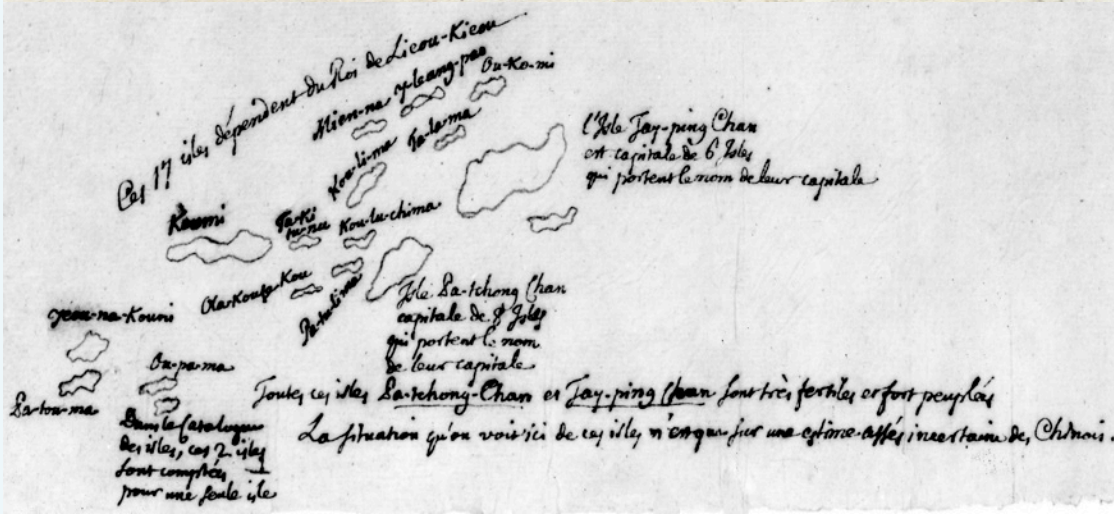 Ces 17 isles dépendent du Roi de Lieou-Kieou
Mien-na
y-leang-pao
Ou-Ko-mi
Kou-li-ma
Ta-la-ma
l'Isle Tay-ping Chan
est capitale de 6 Isles
qui portent le nom de leur capitale
Koumi
Ta-Ki
tu-nu
Kou-lu-chima
Ola-Kouga-Kou
Pa-tu-li-ma
Isle Pa-tchong Chan
capitale de 8 Isles
qui portent le nom
de leur capitale
yeou-na-Kouni
Ou-pa-ma
Pa-tou-ma
Dans la Catalogue
des isles, ces 2 isles
sont comptées
pour une seule isle
Toutes ces isles Pa-tchong-Chan et Tay-ping Chan sont très fertiles et fort peuplées
La situation qu'on voit ici de ces isles n'est que sur une estime assés incertaine des Chinois.